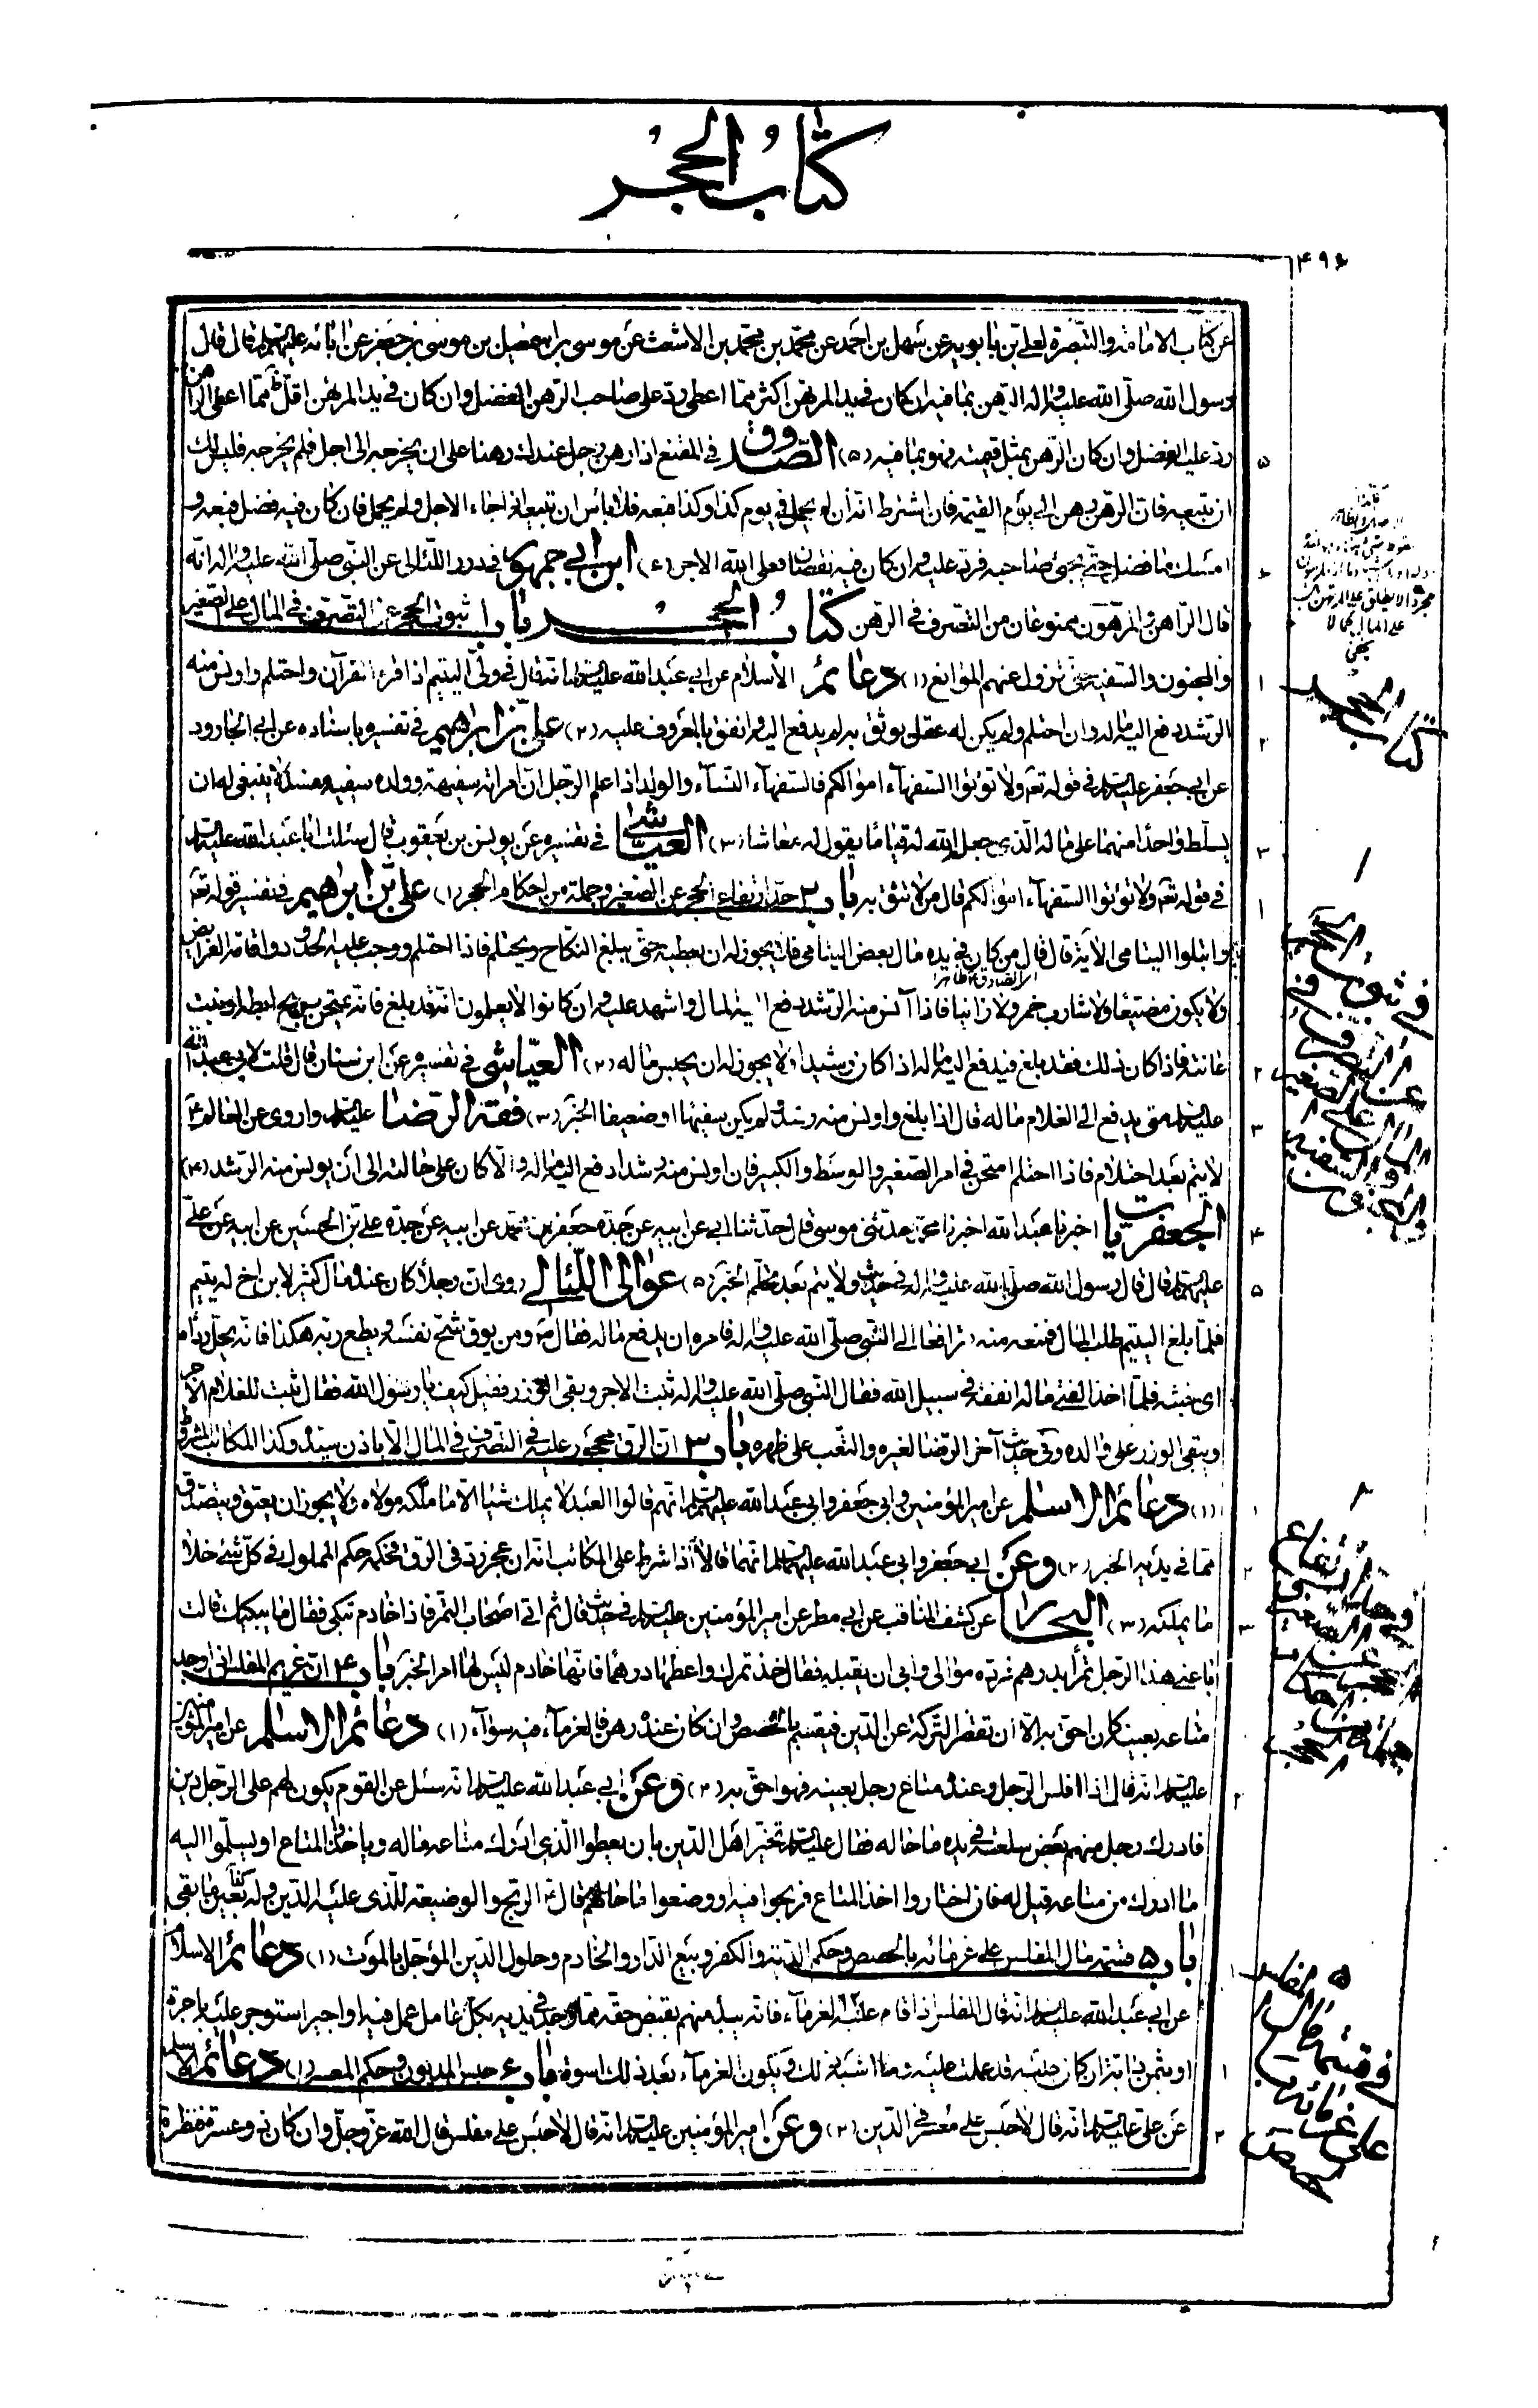 كتاب الحجر
۴۹۶
عن كتاب الامامة والتبصرة لعلي بن بابويه عن سهل بن احمد عن محمد بن محمد بن الاشعث عن موسى بن اسمعيل بن موسى بن جعفر عن ابائه عليهم السلام قال قال
رسول الله صلى الله عليه واله الرهن بما فيه ان كان في يد المرتهن اكثر مما اعطى رد على صاحب الرهن الفضل وان كان في يد المرتهن اقل مما اعطى الراهن
رد عليه الفضل وان كان الرهن بمثل قيمته فهو بما فيه (۵) الصدوق في المقنع اذا رهن رجل عندك رهنا على ان يخرجه الى اجل فلم يخرجه فليس لك
ان تبيعه فان الرهن رهن الى يوم القيمة فان اشترط انه ان لم يحمل في يوم كذا وكذا فبعه فلا باس ان تبيعه اذا جاء الاجل ولم يحمل فان كان فيه فضل فبعه و
امسك ما فضل حتى يجيئ صاحبه فرد عليه وان كان فيه نقصان فعلى الله الاجر (۶) ابن ابي جمهور في درر اللئالي عن النبي صلى الله عليه واله انه
قال الراهن والمرتهن ممنوعان من التصرف في الرهن كتاب الحجر باب ۱ ثبوت الحجر عن التصرف في المال على الصغير
والمجنون والسفيه حتى تزول عنهم الموانع (۱) دعائم الاسلام عن ابي عبد الله عليه السلام انه قال في ولي اليتيم اذا قرء القرآن واحتلم واونس منه
الرشد دفع اليه ماله وان احتلم ولم يكن له عقل يوثق به لم يدفع اليه وانفق بالمعروف عليه (۲) علي بن ابراهيم في تفسيره باسناده عن ابي الجارود
عن ابي جعفر عليه السلام في قوله تعالى ولا تؤتوا السفهآء اموالكم فالسفهآء النسآء والولد اذا علم الرجل ان امراته سفيهة وولده سفيه مفسد لا ينبغي له ان
يسلط واحدا منهما على ماله الذي جعل الله له قياما يقول له معاشا (۳) العياشي في تفسيره عن يونس بن يعقوب قال سئلت ابا عبد الله عليه السلام
في قوله تعالى ولا تؤتوا السفهآء اموالكم قال من لا تثق به باب ۲ حد ارتفاع الحجر عن الصغير وجملة من احكام الحجر (۱) علي بن ابراهيم في تفسير قوله تعالى
وابتلوا اليتامى الآية قال قال من كان في يده مال بعض اليتامى فلا يجوز له ان يعطيه حتى يبلغ النكاح ويحتلم فاذا احتلم ووجب عليه الحدود واقامة الفرائض
ولا يكون مضيعا ولا شارب خمر ولا زانيا فاذا آنس منه الرشد دفع اليه المال واشهد عليه وان كانوا لا يعلمون انه قد بلغ فانه يمتحن بريح ابطه او نبت
عانته فاذا كان ذلك فقد بلغ فيدفع اليه ماله اذا كان رشيدا ولا يجوز له ان يحبس ماله (۲) العياشي في تفسيره عن ابن سنان قال قلت لابي عبد الله
عليه السلام متى يدفع الى الغلام ماله قال اذا بلغ واونس منه رشد ولم يكن سفيها او ضعيفا الخبر (۳) فقه الرضا عليه السلام واروى عن العالم
لا يتم بعد احتلام فاذا احتلم امتحن في امر الصغير والوسط والكبير فان اونس منه رشد دفع اليه ماله والا كان على حالته الى ان يونس منه الرشد (۴)
الجعفريات اخبرنا عبد الله اخبرنا محمد حدثني موسى قال حدثنا ابي عن ابيه عن جده جعفر بن محمد عن ابيه عن جده علي بن الحسين عن ابيه عن علي
عليهم السلام قال قال رسول الله صلى الله عليه واله في حديث ولا يتم بعد تحلم الخبر (۵) عوالي اللئالي روي ان رجلا كان عنده مال كثير لابن اخ له يتيم
فلما بلغ اليتيم طلب المال فمنعه منه فترافعا الى النبي صلى الله عليه واله فامره ان يدفع ماله فقال ومن يوق شح نفسه ويطع ربه هكذا فانه يحل داره
اي جنته فلما اخذ الفتى ماله انفقه في سبيل الله فقال النبي صلى الله عليه واله ثبت الاجر وبقى الوزر فقيل كيف يا رسول الله فقال ثبت للغلام الاجر
ويبقى الوزر على والده وفي حديث آخر الرضا لغيره والتعب على ظهره باب ۳ ان الرق محجور عليه في التصرف في المال الا باذن سيده وكذا المكاتب المشروط
(۱) دعائم الاسلام عن امير المؤمنين وابي جعفر وابي عبد الله عليهم السلام انهم قالوا العبد لا يملك شيئا الا ما ملكه مولاه ولا يجوز ان يعتق ويتصدق
مما في يديه الخبر (۲) وعن ابي جعفر وابي عبد الله عليهما السلام انهما قالا اذا شرط على المكاتب انه ان عجز رد في الرق فحكمه حكم المملوك في كل شئ خلا
ما يملكه (۳) البحار عن كشف المناقب عن ابي مطر عن امير المؤمنين عليه السلام في حديث قال ثم اتى اصحاب التمر فاذا خادم تبكي فقال ما يبكيك قالت
باعني هذا الرجل تمرا بدرهم فرده موالي وابى ان يقبله فقال خذ تمرك واعطها درهما فانها خادم ليس لها امر الخبر باب ۴ ان غريم المفلس اذا وجد
متاعه بعينه كان احق به الا ان تقصر التركة عن الدين فيقسم بالحصص وان كان عنده رهن فالغرمآء فيه سوآء (۱) دعائم الاسلام عن امير المؤمنين
عليه السلام انه قال اذا افلس الرجل وعنده متاع رجل بعينه فهو احق به (۲) وعن ابي عبد الله عليه السلام انه سئل عن القوم يكون لهم على الرجل دين
فادرك رجل منهم بعض سلعته في يده ما حاله فقال عليه السلام تخير اهل الدين بان يعطوا الذي ادرك متاعه ماله وياخذوا المتاع او يسلموا اليه
ما ادرك من متاعه قيل له فان اختاروا اخذ المتاع فربحوا فيه او وضعوا ما حالهم قال الربح والوضيعة للذي عليه الدين وله ما بقى
باب ۵ قسمة مال المفلس على غرمائه بالحصص وحكم الدية والكفن وبيع الدار والخادم وحلول الدين المؤجل بالموت (۱) دعائم الاسلام
عن ابي عبد الله عليه السلام انه قال المفلس اذا قام عليه الغرمآء فانه يبدء منهم بقبض حقه مما وجد في يديه بكل عامل عمل فيه او اجير استوجر عليه باجرة
او ثمن دابة ان كان حبسه قد عملت عليه وما اشبه ذلك ويكون الغرمآء بعد ذلك اسوة باب ۶ حبس المديون وحكم المعسر (۱) دعائم الاسلام
عن علي عليه السلام انه قال لا حبس على معسر في الدين (۲) وعن امير المؤمنين عليه السلام انه قال لا حبس على مفلس قال الله عز وجل وان كان ذو عسرة فنظرة
كتاب الحجر
في قسمة مال
على غرمائه